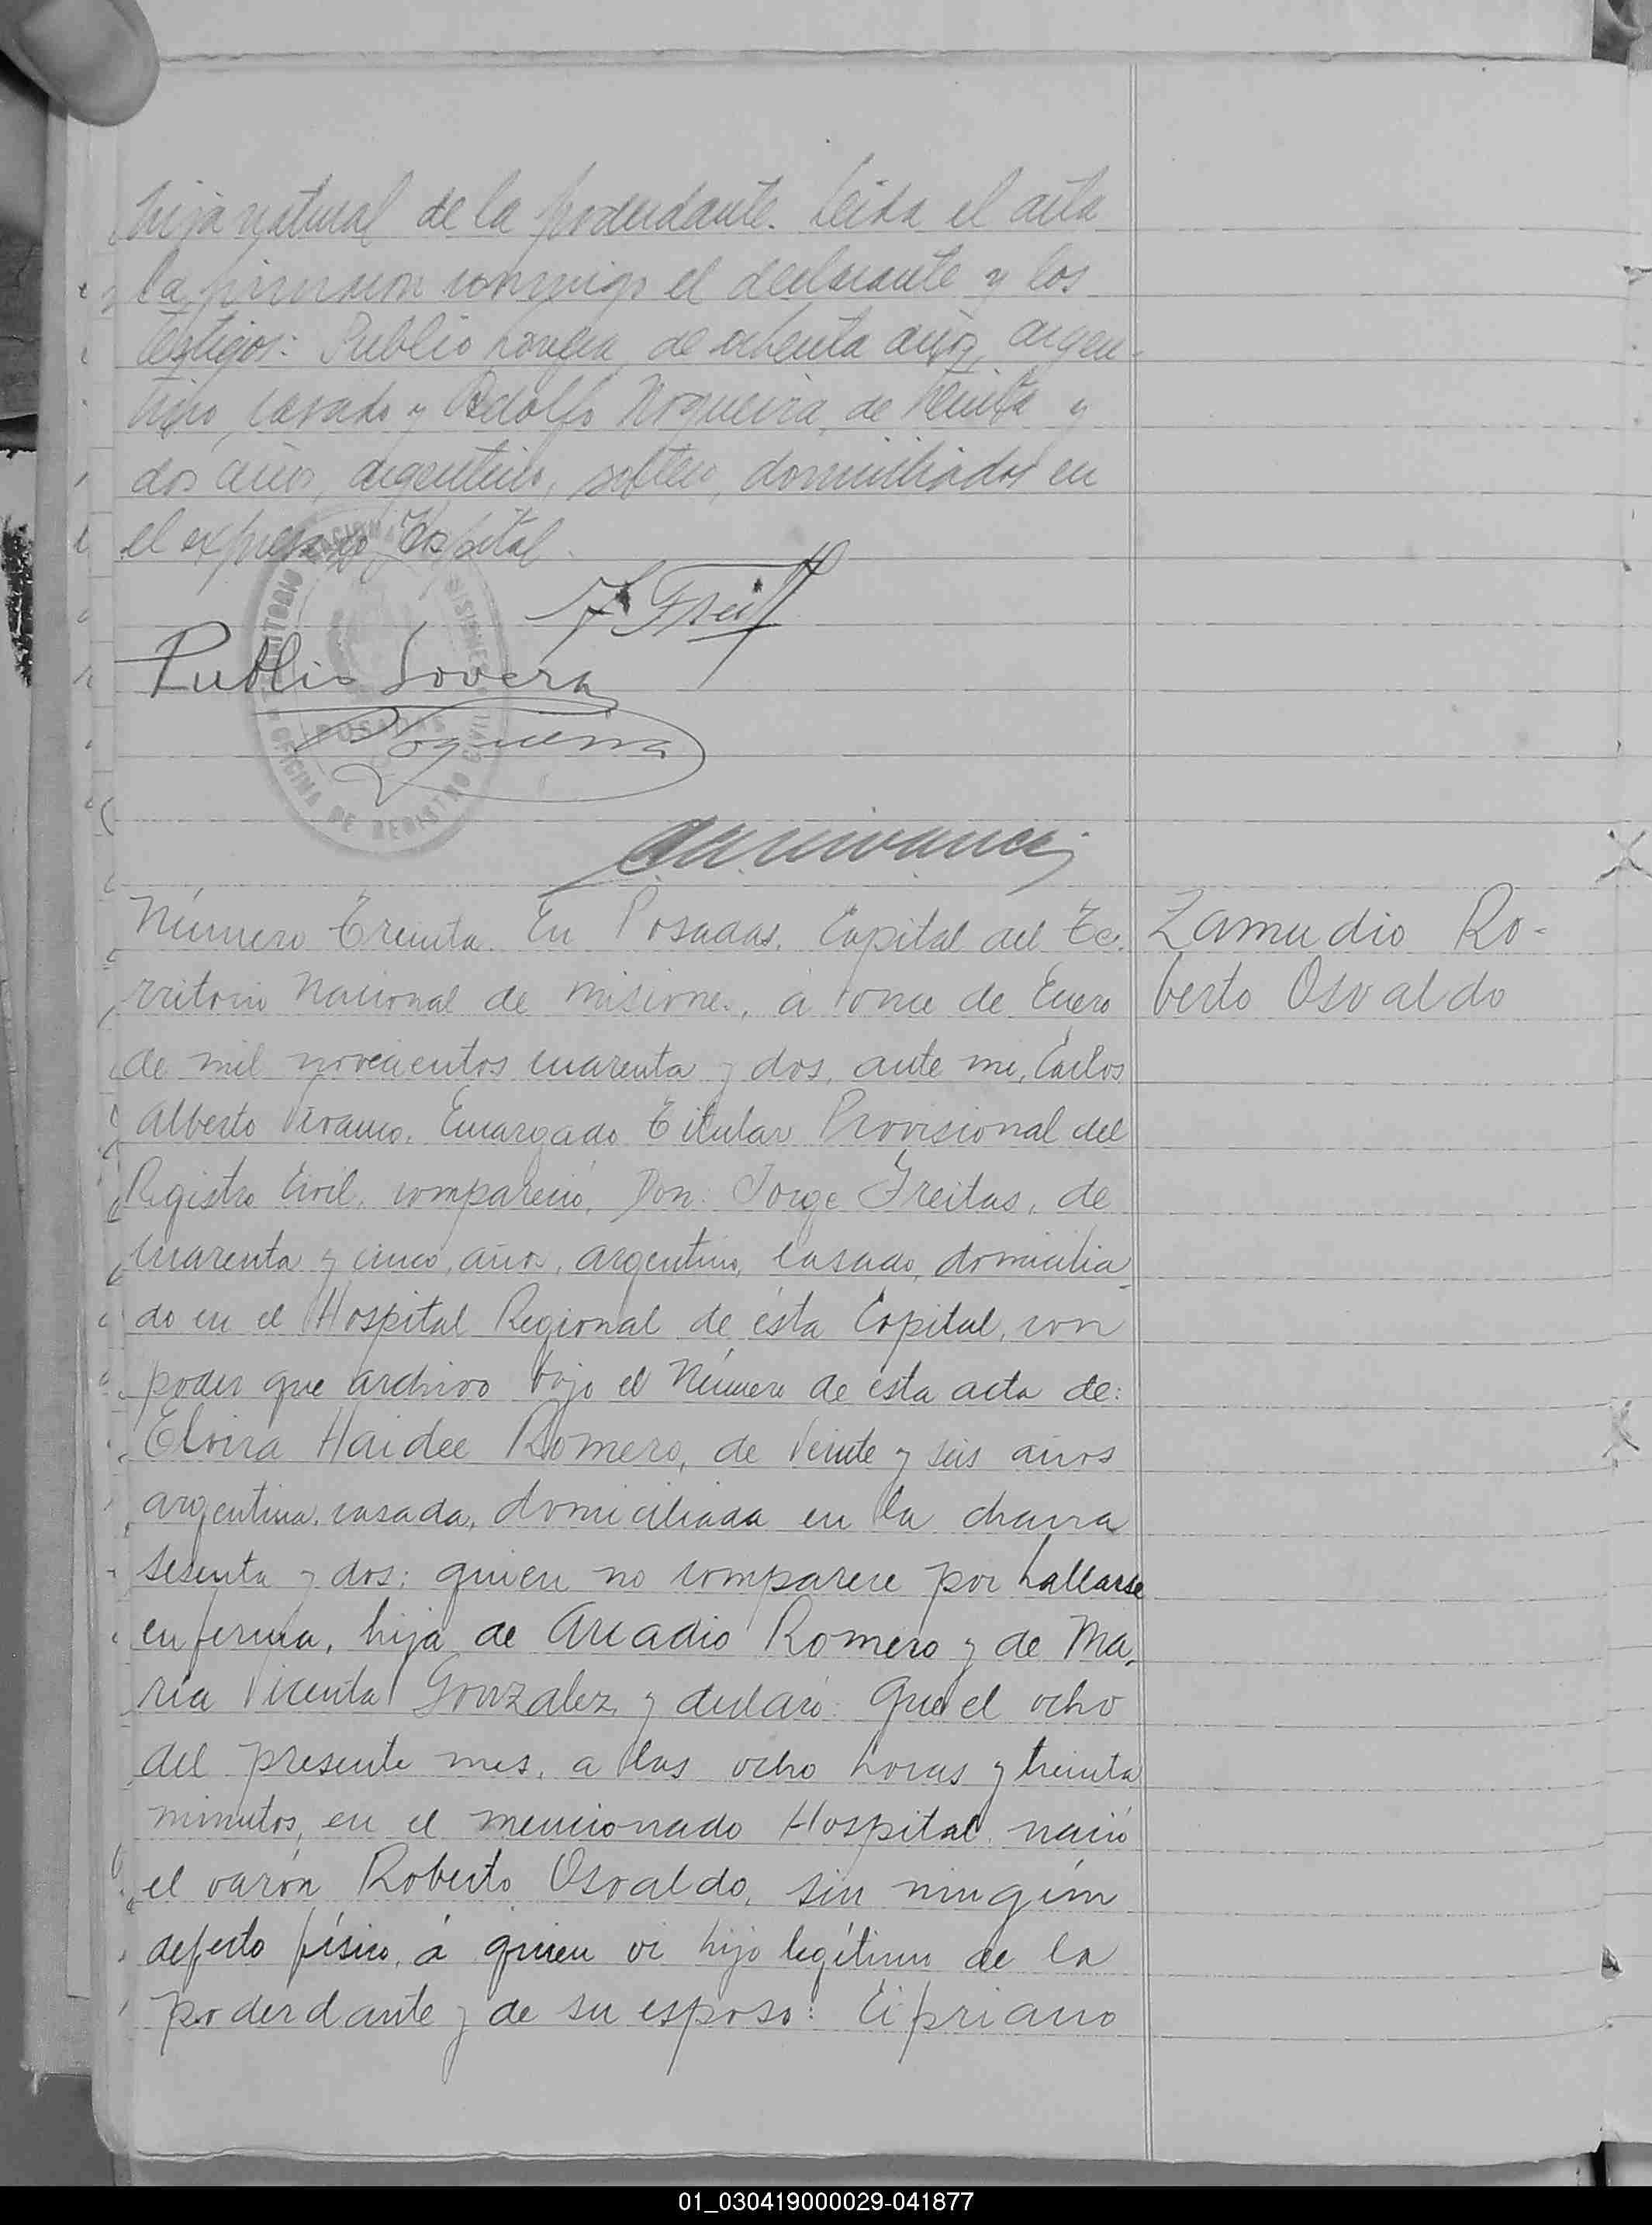 hija natural de la poderdante. Leida el acta
la firmaron conmigo el declarante y los
testigos: Publio Lovera, de ochenta años, argen-
tino, casado y Adolfo Nogueira, de treinta y
dos años, argentino, soltero, domiciliados en
el expresado Hospital.
J Freitas
Publio Lovera
Nogueira
POSADAS
OFICINA DE REGISTRO CIVIL
Número Treinta. En Posadas, Capital del Te-
rritorio Nacional de Misiones, á once de Enero
de mil novecientos cuarenta y dos, ante mi, Carlos
Alberto Vivanco, Encargado Titular Provisional del
Registro Civil, compareció, Don: Jorge Freitas, de
cuarenta y cinco, años, argentino, casado, domicilia-
do en el Hospital Regional de ésta Capital, con
poder que archivo bajo el Número de ésta acta de:
Elvira Haidee Romero, de Veinte y seis años
argentina, casada, domiciliada en la chacra
sesenta y dos; quien no comparece por hallarse
enferma, hija de Arcadio Romero y de Ma-
ria Vicenta Gonzalez y declaró: Que el ocho
del presente mes, a las ocho horas y treinta
minutos, en el mencionado Hospital nació
el varón Roberto Osvaldo, sin ningún
defecto físico, á quien vi hijo legítimo de la
poderdante y de su esposo: Cipriano
Zamudio Ro-
berto Osvaldo
01_030419000029-041877